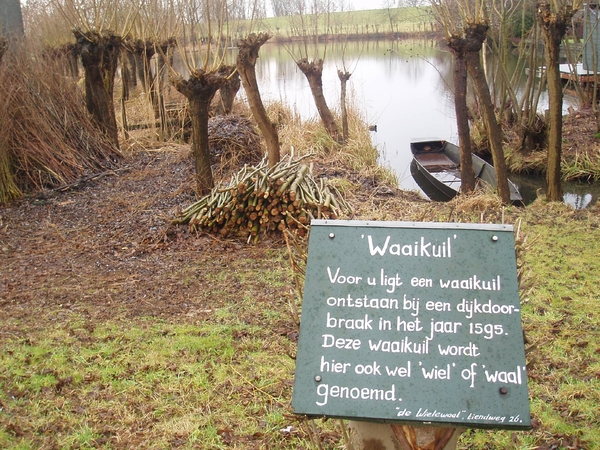 'Waaikuil'
Voor u ligt een waaikuil
ontstaan bij een dijkdoor-
braak in het jaar 1595.
Deze waaikuil wordt
hier ook wel 'wiel' of 'waal'
genoemd.
"de Wielewaal", Liendweg 26.